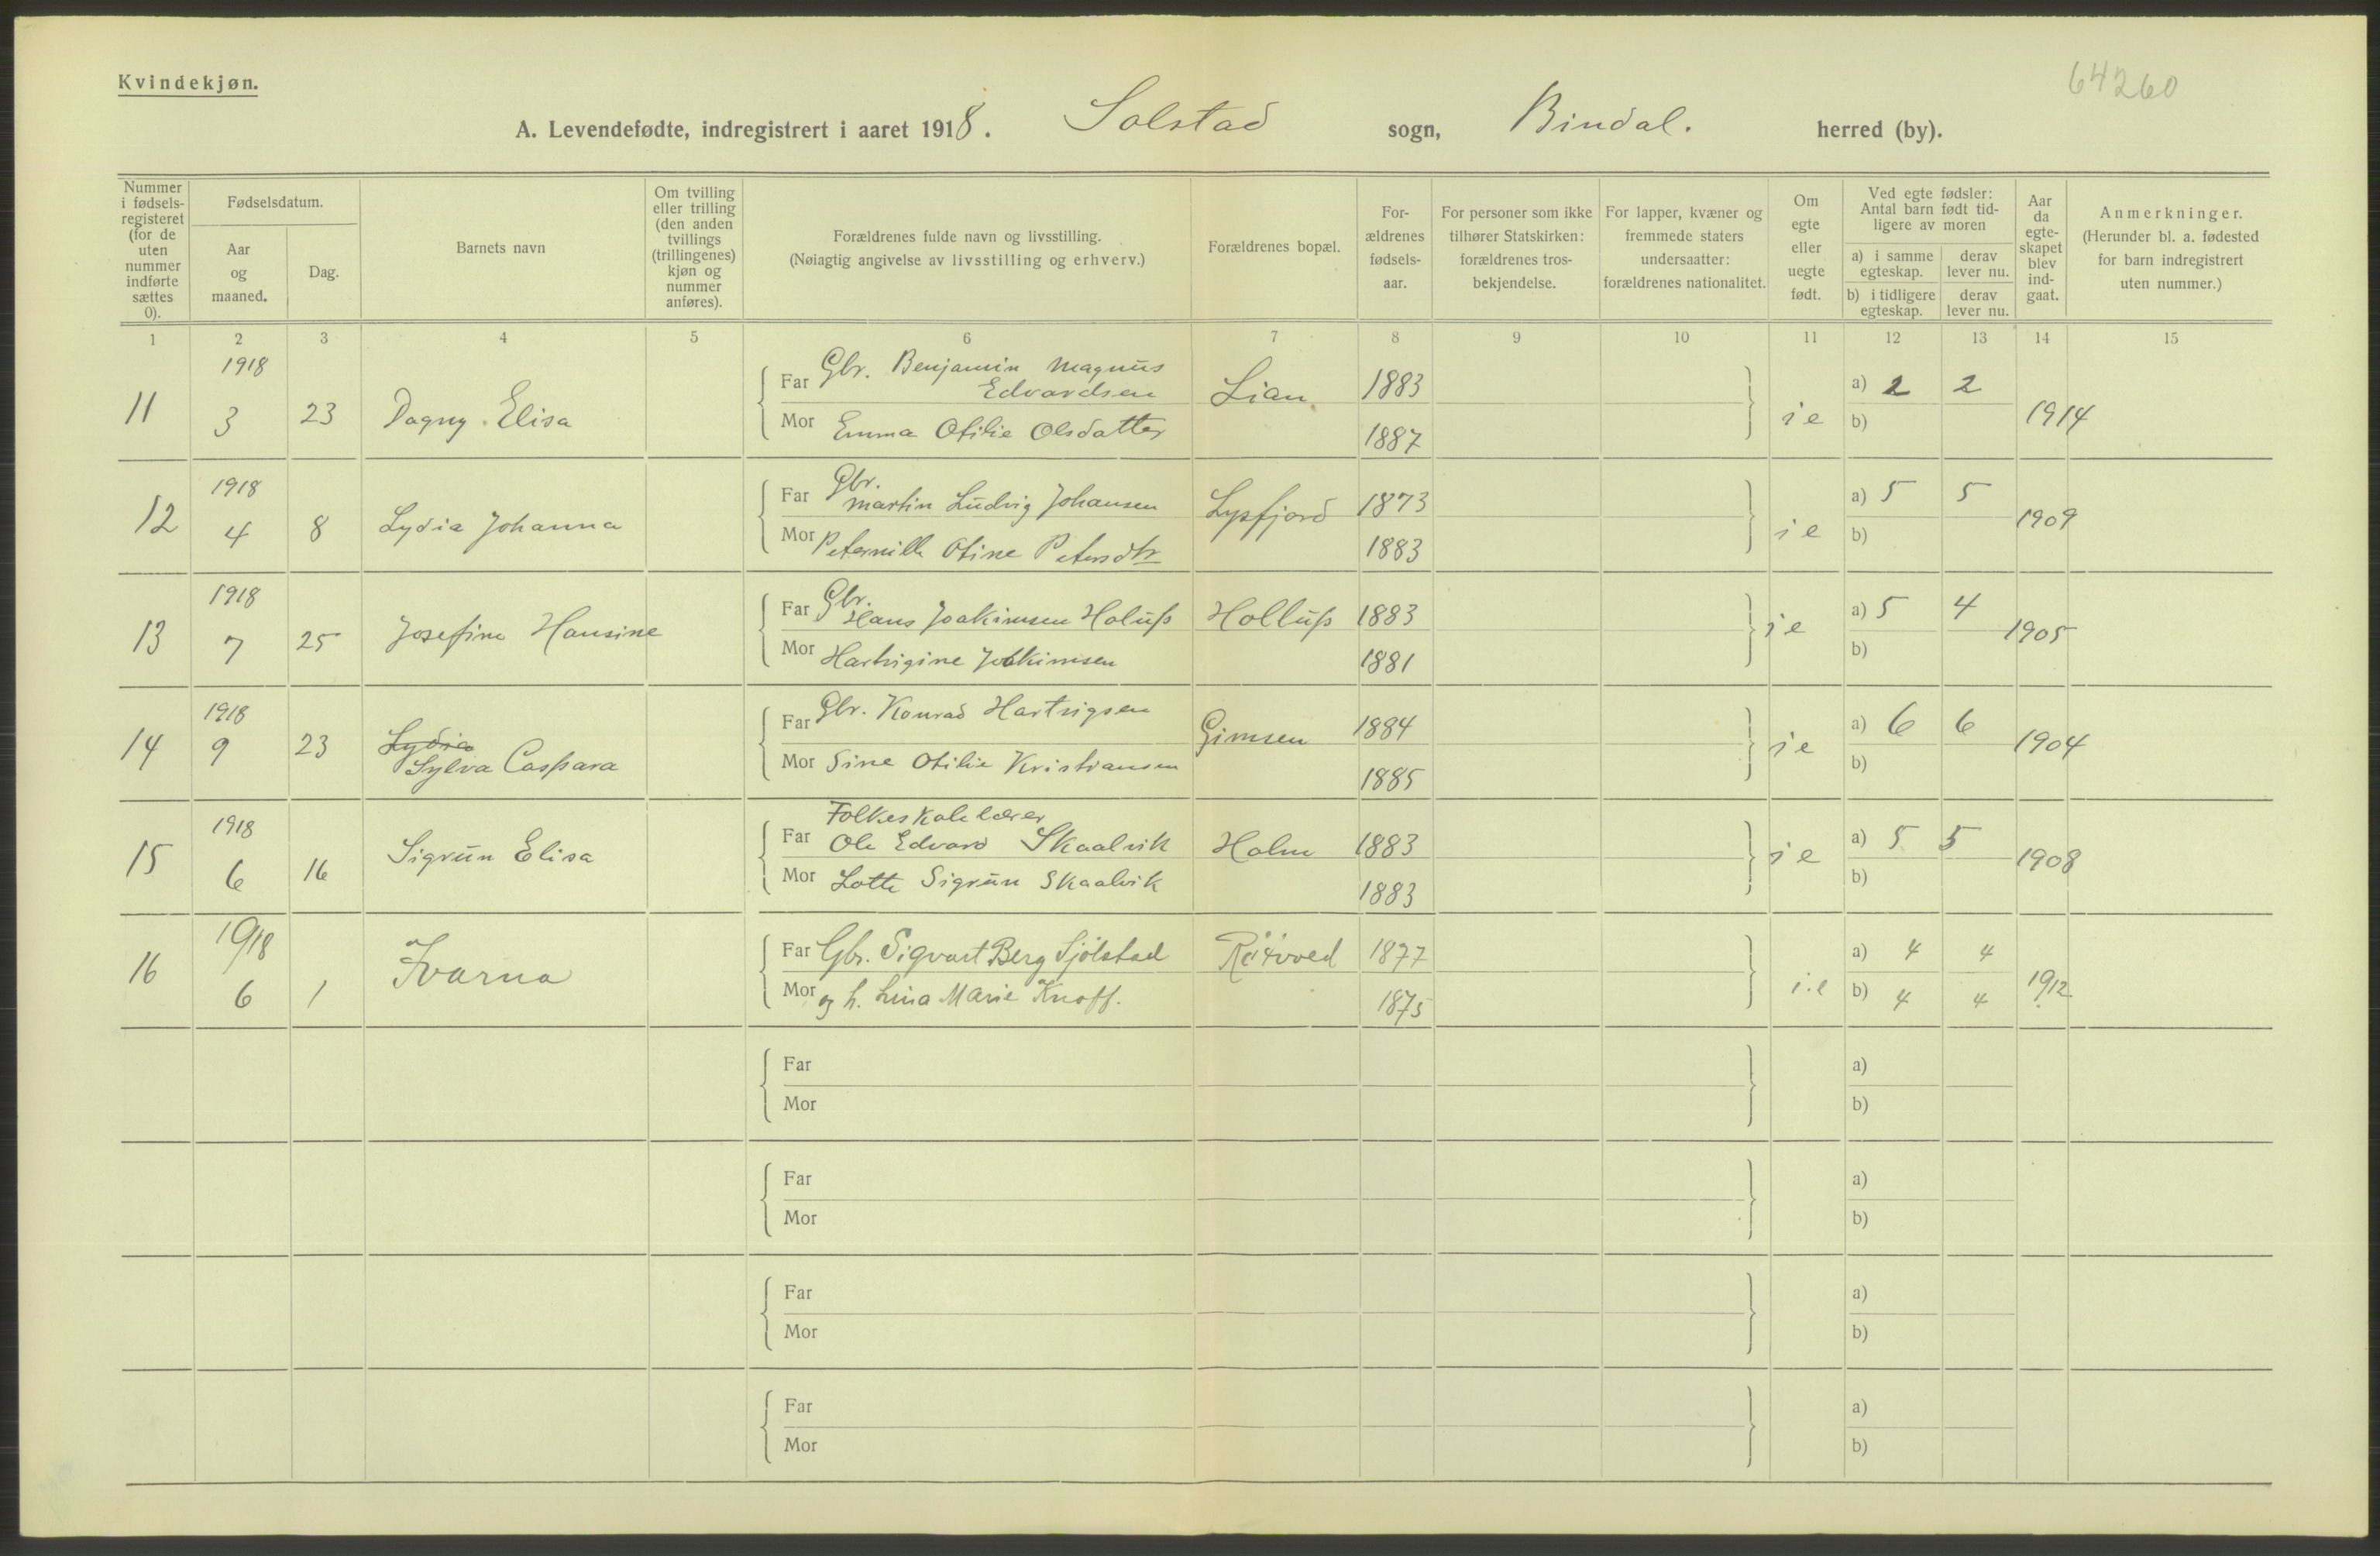 Kvindekjøn.
64260
A. Levendefødte, indregistrert i aaret 1918. Solstad sogn, Bindal. herred (by).
Nummer i fødsels-registeret (for de uten nummer indførte sættes 0).
Fødselsdatum.
Aar og maaned.
Dag.
Barnets navn
Om tvilling eller trilling (den anden tvillings (trillingenes) kjøn og nummer anføres).
Forældrenes fulde navn og livsstilling.
(Nøiagtig angivelse av livsstilling og erhverv.)
Forældrenes bopæl.
For-ældrenes fødsels-aar.
For personer som ikke tilhører Statskirken: forældrenes tros-bekjendelse.
For lapper, kvæner og fremmede staters undersaatter: forældrenes nationalitet.
Om egte eller uegte født.
Ved egte fødsler: Antal barn født tid-ligere av moren
a) i samme egteskap.
derav lever nu.
b) i tidligere egteskap.
derav lever nu.
Aar da egte-skapet blev ind-gaat.
Anmerkninger.
(Herunder bl. a. fødested for barn indregistrert uten nummer.)
1 2 3 4 5 6 7 8 9 10 11 12 13 14 15
11 1918 3 23 Dagny Elisa
Far Gbr. Benjamin Magnus Edvardsen Lian 1883
Mor Emma Otilie Olsdatter 1887
i e a) 2 2 b) 1914
12 1918 4 8 Lydia Johanna
Far Gbr. Martin Ludvig Johansen Lysfjord 1873
Mor Peternille Otine Petersdtr 1883
i e a) 5 5 b) 1909
13 1918 7 25 Josefine Hansine
Far Gbr. Hans Joakimsen Holuss Holluss 1883
Mor Hartvigine Joakimsen 1881
i e a) 5 4 b) 1905
14 1918 9 23 Lydia Sylva Caspara
Far Gbr. Konrad Hartvigsen Gimsen 1884
Mor Sine Otilie Kristiansen 1885
i e a) 6 6 b) 1904
15 1918 6 16 Sigrun Elisa
Far Folkeskolelærer Ole Edvard Skaalvik Holm 1883
Mor Lotte Sigrun Skaalvik 1883
i e a) 5 5 b) 1908
16 1918 6 1 Ivarna
Far Gbr. Sigvart Berg Sjölstad 1877
Mor og h. Lina Marie Knoff. 1875
i.e a) 4 4 b) 4 4 1912.
Far
Mor
a)
b)
Far
Mor
a)
b)
Far
Mor
a)
b)
Far
Mor
a)
b)